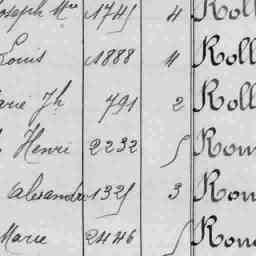 oseph Mie 1745 4 Roll
Louis 1888 4 Roll
arie Jh 791 2 Roll
Henri 2232 5 Rou
alexandre 1325 3 Rou
Marie 2446 5 Rou